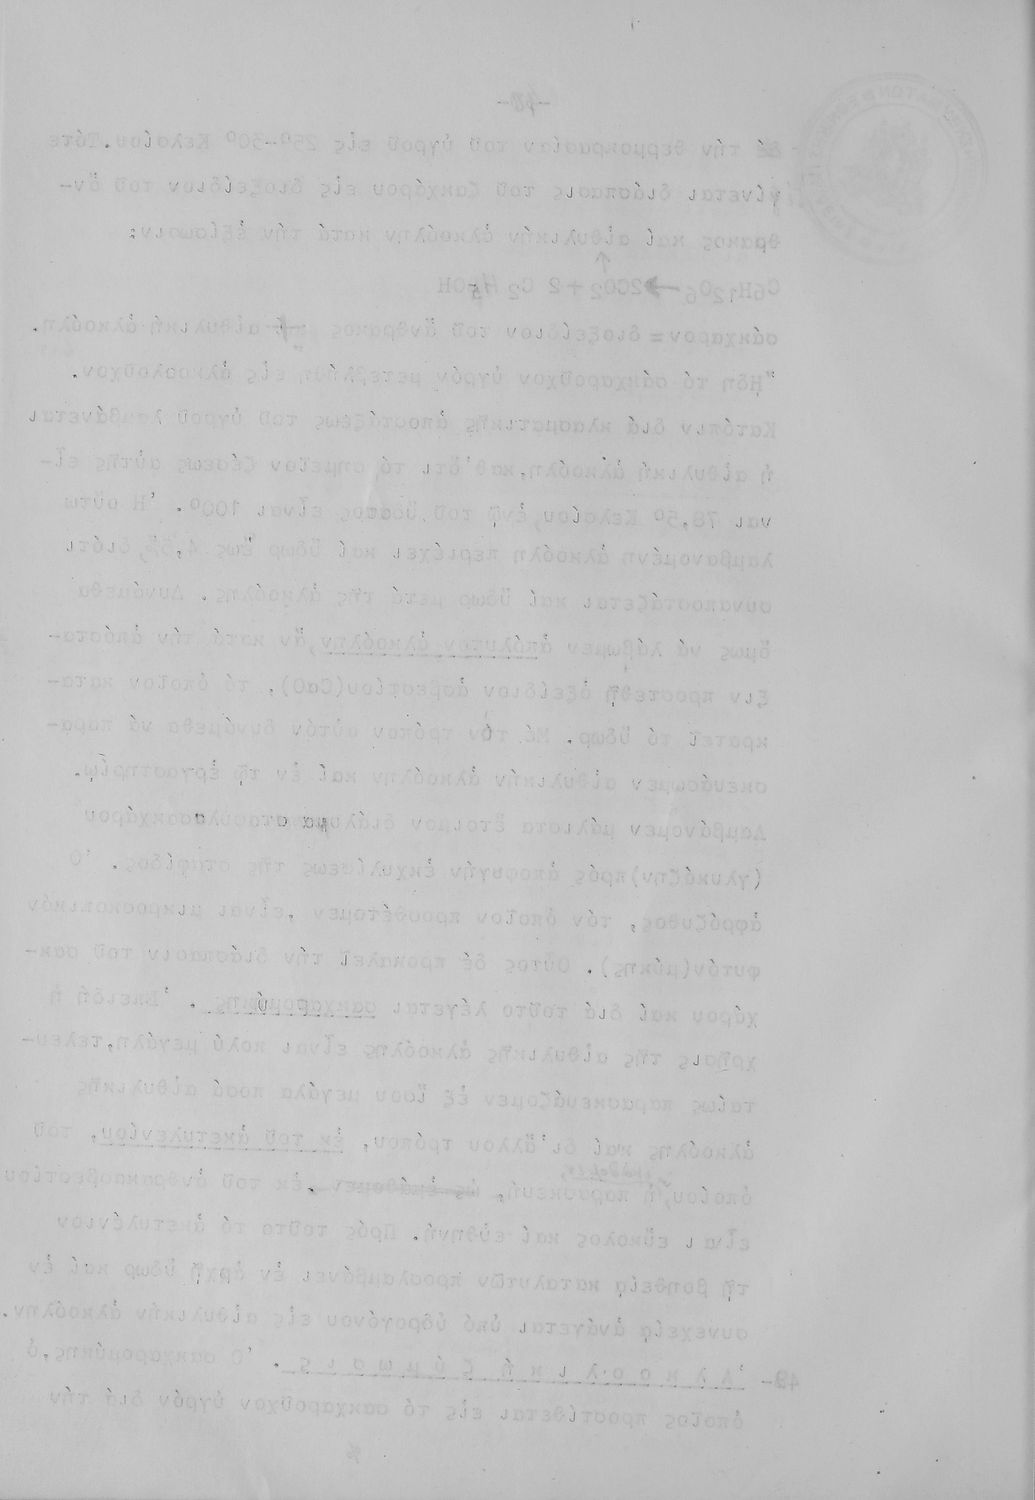 -40-
δέ τήν θερμοκρασίαν τοῦ ὑγροῦ εἰς 25º-30º Κελσίου. Τότε
γίνεται διάσπασις τοῦ ζακχάρου εἰς διοξείδιον τοῦ ἄν-
θρακος καί αἰθυλικήν ἀλκοόλην κατά τήν ἐξίσωσιν:
C6H12O6 → 2CO2 ↑ + 2 C2H5OH
σάκχαρον = διοξείδιον τοῦ ἄνθρακος + αἰθυλική ἀλκοόλη.
Ἤδη τό σάκχαροῦχον ὑγρόν μετεβλήθη εἰς ἀλκοολοῦχον.
Κατόπιν διά κλασματικῆς ἀποστάξεως τοῦ ὑγροῦ λαμβάνεται
ἡ αἰθυλική ἀλκοόλη, καθ' ὅτι τό σημεῖον ζέσεως αὐτῆς εἶ-
ναι 78,5º Κελσίου, ἐνῷ τοῦ ὕδατος εἶναι 100º. Ἡ οὕτω
λαμβανομένη ἀλκοόλη περιέχει καί ὕδωρ ἕως 4,5%, διότι
συναποστάζεται καί ὕδωρ μετά τῆς ἀλκοόλης. Δυνάμεθα
ὅμως νά λάβωμεν ἀπόλυτον ἀλκοόλην, ἄν κατά τήν ἀπόστα-
ξιν προστεθῇ ὀξείδιον ἀσβεστίου (CaO), τό ὁποῖον κατα-
κρατεῖ τό ὕδωρ. Μέ τόν τρόπον αὐτόν δυνάμεθα νά παρα-
σκευάσωμεν αἰθυλικήν ἀλκοόλην καί ἐν τῷ ἐργαστηρίῳ.
Λαμβάνομεν μάλιστα ἕτοιμον διάλυμα σταφυλοσακχάρου
(γλυκόζην) πρός ἀποφυγήν ἐκχυλίσεως τῆς σταφίδος. Ὁ
ἀφρόζυθος, τόν ὁποῖον προσθέτομεν, εἶναι μικροσκοπικόν
φυτόν (μύκης). Οὗτος δέ προκαλεῖ τήν διάσπασιν τοῦ σακ-
χάρου καί διά τοῦτο λέγεται σακχαρομύκης. Ἐπειδή ἡ
χρῆσις τῆς αἰθυλικῆς ἀλκοόλης εἶναι πολύ μεγάλη, τελευ-
ταίως παρασκευάζομεν ἐξ ἴσου μεγάλα ποσά αἰθυλικῆς
ἀλκοόλης καί δι' ἄλλου τρόπου, ἐκ τοῦ ἀκετυλενίου, τοῦ
ὁποίου, ἡ παρασκευή, ὡς ἐμάθομεν, ἐκ τοῦ ἀνθρακασβεστίου
εἶναι εὔκολος καί εὐθηνή. Πρός τοῦτο τό ἀκετυλένιον
τῇ βοηθείᾳ καταλυτῶν προσλαμβάνει ἐν ἀρχῇ ὕδωρ καί ἐν
συνεχείᾳ ἀνάγεται ὑπό ὑδρογόνου εἰς αἰθυλικήν ἀλκοόλην.
49- Ἀλκοολική ζύμωσις. Ὁ σακχαρομύκης, ὁ
ὁποῖος προστίθεται εἰς τό σακχαροῦχον ὑγρόν διά τήν